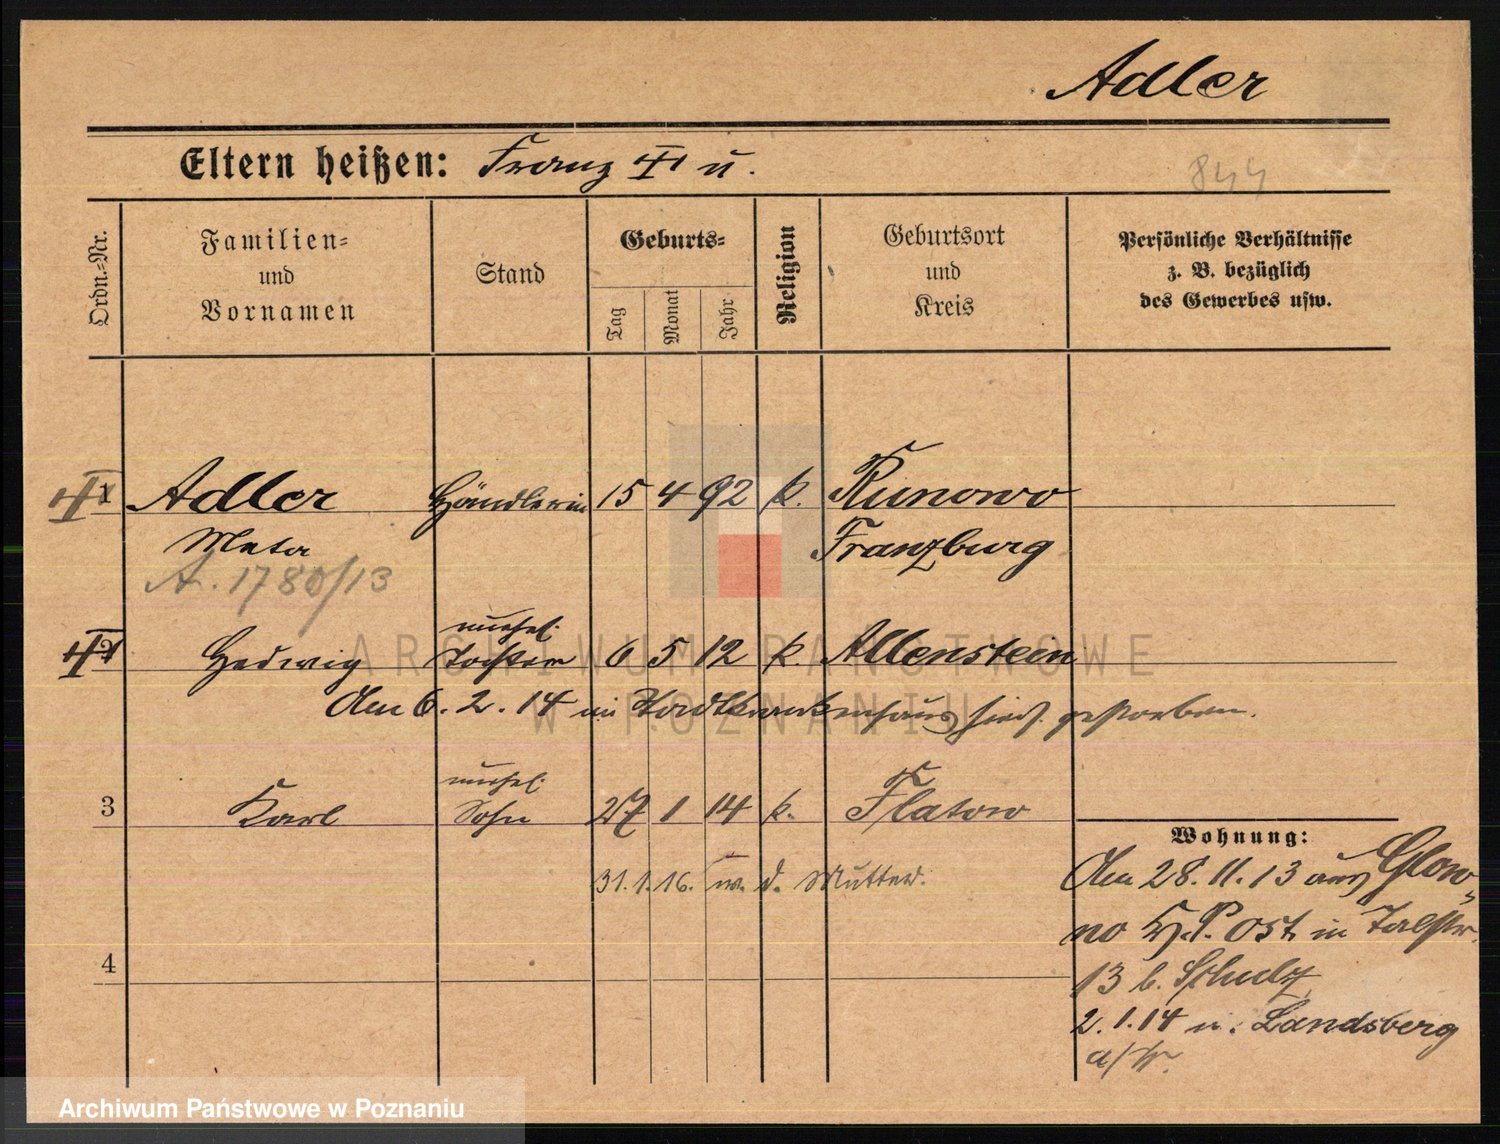 Adler
Eltern heißen: Franz u.
844
Ordn.-Nr.
Familien-
und
Vornamen
Stand
Geburts-
Tag
Monat
Jahr
Religion
Geburtsort
und
Kreis
Persönliche Verhältnisse
z. B. bezüglich
des Gewerbes usw.
1 Adler Händlerin 15 4 92 k. Runowo
Meta Franzburg
A. 1780/13
unehel.
2 Hedwig Tochter 6 5 12 k. Allenstein
Am 6. 2. 14 im Stadtkrankenhaus hies. gestorben.
unehel.
3 Karl Sohn 27 1 14 k. Flatow
31. 1. 16. w. d. Mutter.
4
Wohnung:
Am 28. 11. 13 aus Glow-
no P. Ost in Talstr.
13 b. Schulz
2. 1. 14 n. Landsberg
a/W.
ARCHIWUM PAŃSTWOWE
W POZNANIU
Archiwum Państwowe w Poznaniu